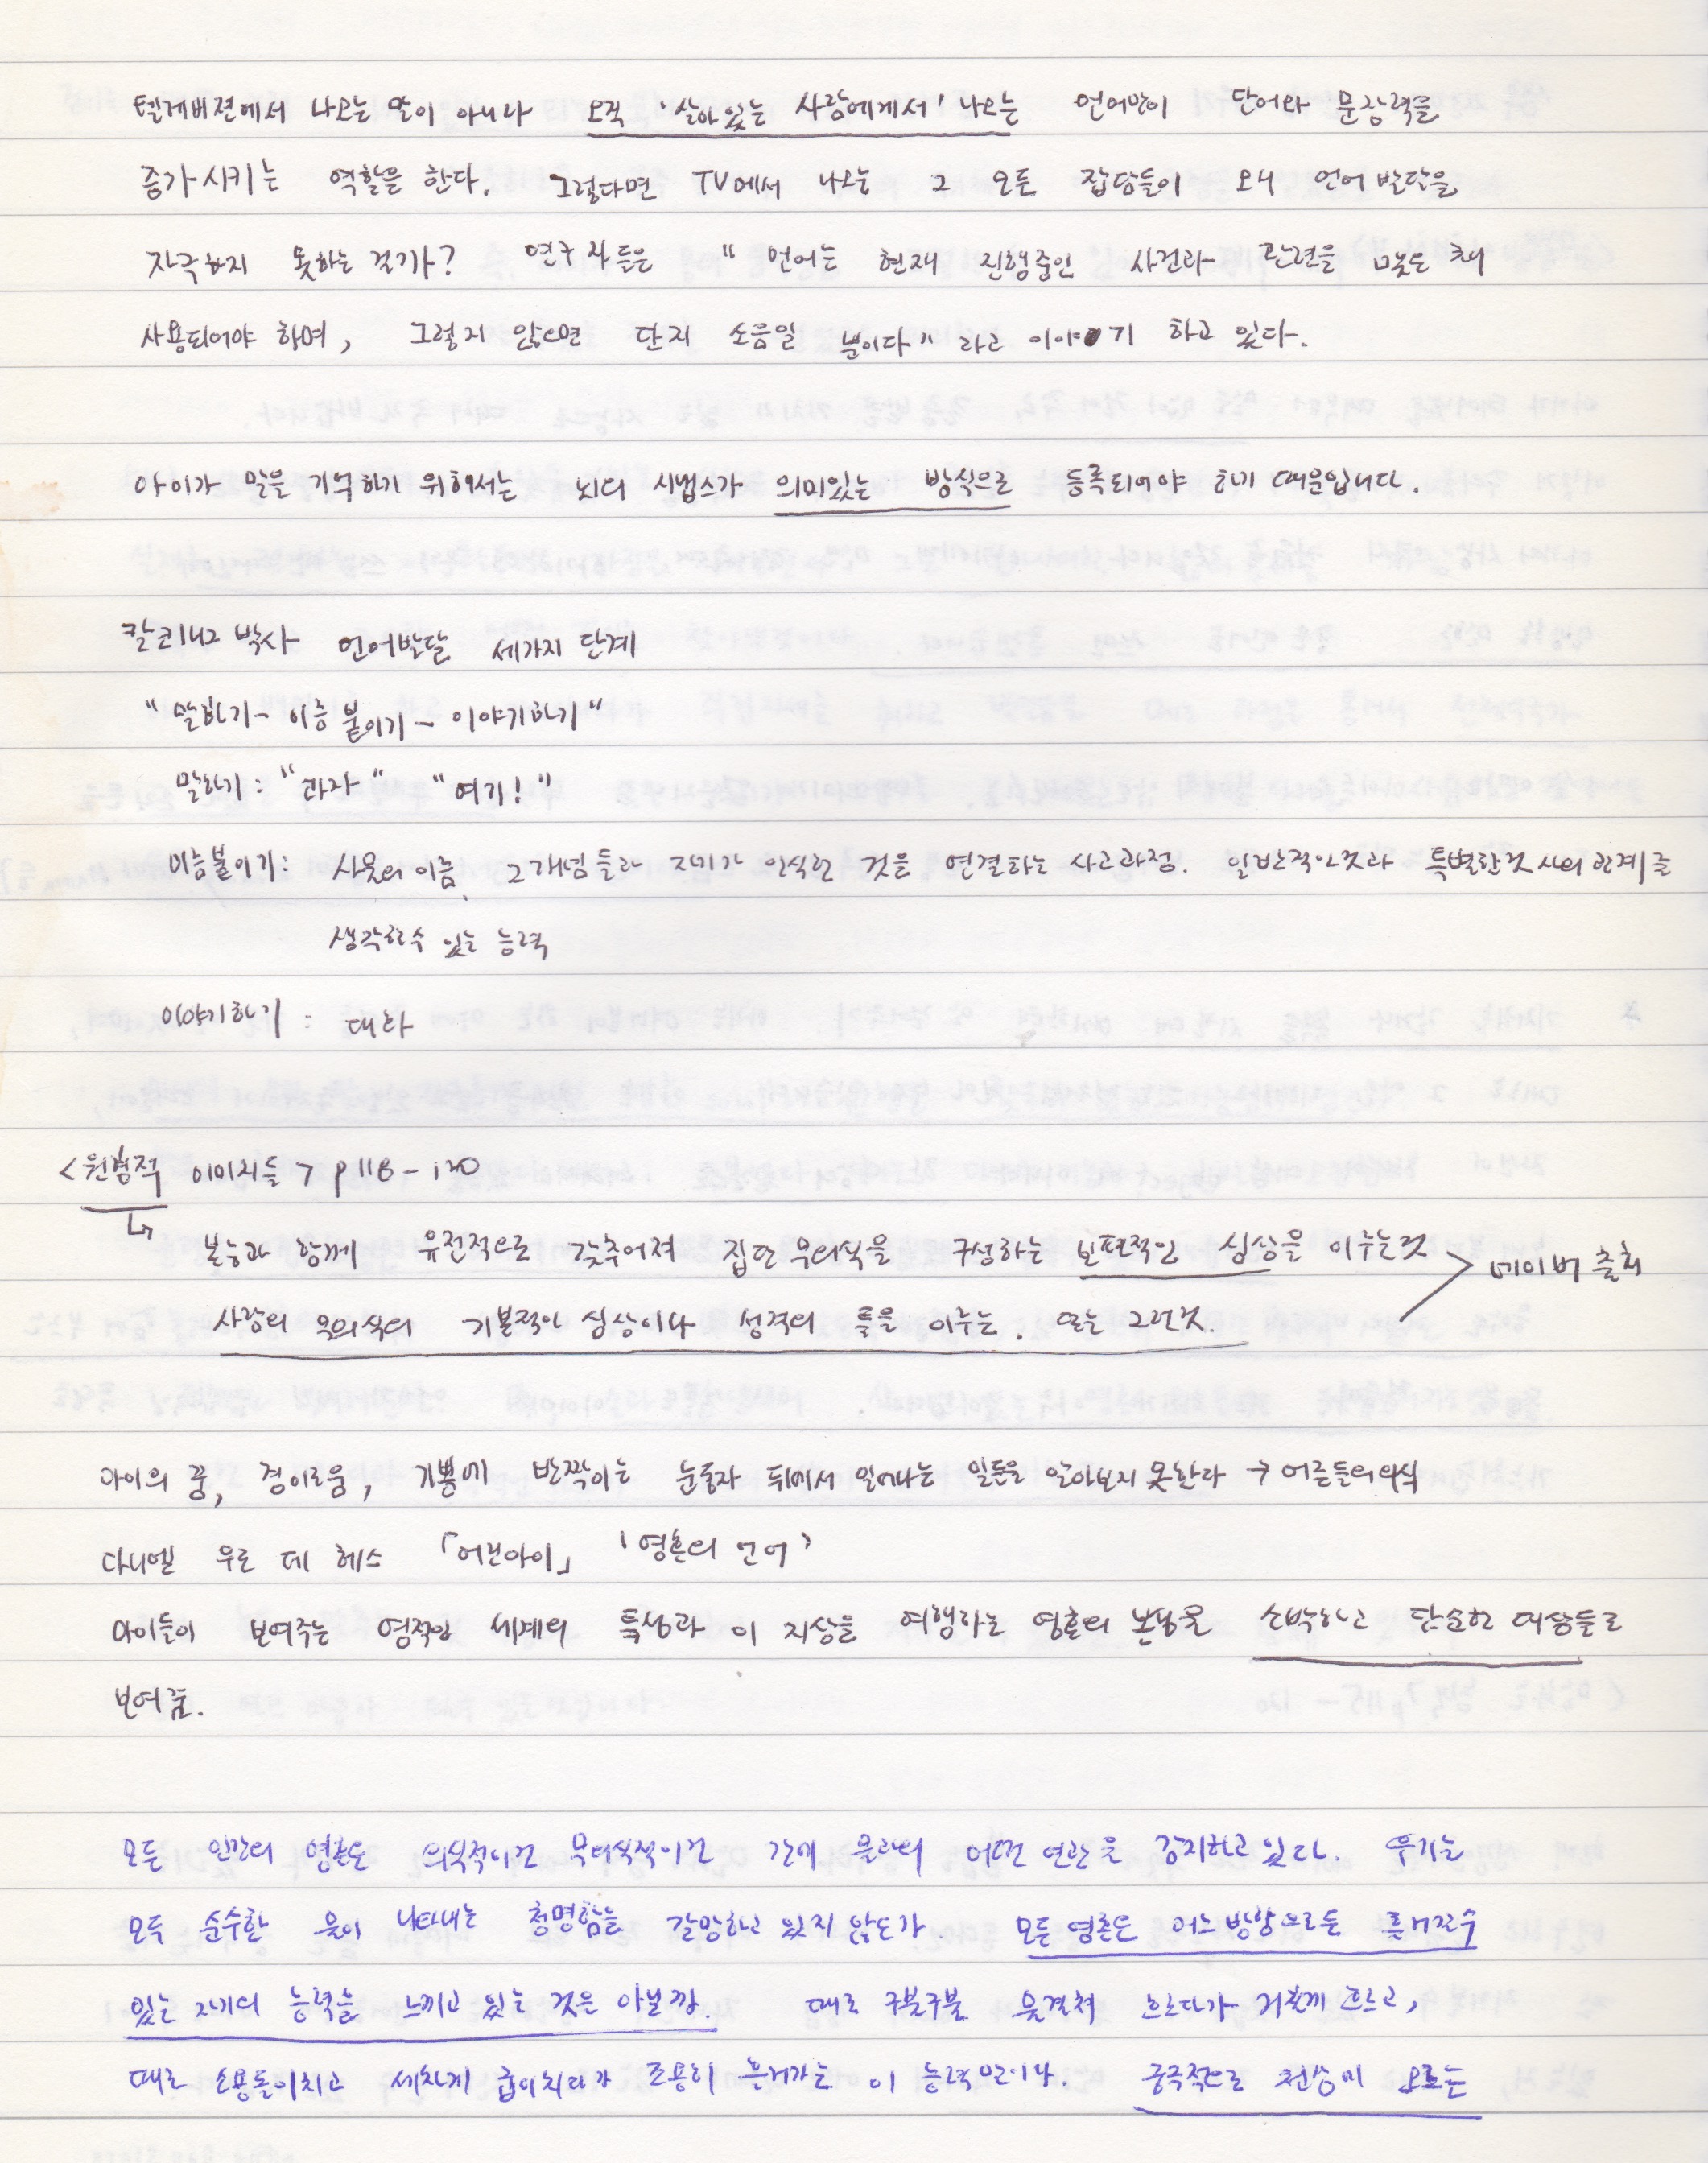 텔레비젼에서 나오는 말이 아니라 오직 '살아있는 사람에게서' 나오는 언어만이 단어와 문장력을
증가시키는 역할을 한다. 그렇다면 TV에서 나오는 그 모든 잡담들이 왜 언어발달을
자극하지 못하는 걸까? 연구자들은 "언어는 현재 진행중인 사건과 관련을 맺은 채
사용되어야 하며, 그렇지 않으면 단지 소음일 뿐이다"라고 이야기 하고 있다.
아이가 말을 기억하기 위해서는 뇌의 시냅스가 의미있는 방식으로 등록되어야 하기 때문입니다.
칼 코니그 박사 언어발달 세가지 단계
"말하기 - 이름 붙이기 - 이야기하기"
말하기 : "과자" "여기!"
이름붙이기 : 사물의 이름. 그 개념들과 자기가 인식한 것을 연결하는 사고과정. 일반적인것과 특별한것 사이 관계를
생각할수 있는 능력
이야기하기 : 대화
<원형적 이미지들> p118 - 120
↳
본능과 함께 유전적으로 갖추어져 집단 무의식을 구성하는 보편적인 심상을 이루는것
네이버 출처
사람의 무의식의 기본적인 심상이나 성격의 틀을 이루는. 또는 그런것.
아이의 꿈, 경이로움, 기쁨에 반짝이는 눈동자 뒤에서 일어나는 일들을 알아보지 못한다 → 어른들의 의식
다니엘 우로 데 헤스 「어린아이」 '영혼의 언어'
아이들이 보여주는 영적인 세계의 특성과 이 지상을 여행하는 영혼의 본능을 소박하고 단순한 대상들로
보여줌.
모든 인간의 영혼은 의식적이건 무의식적이건 간에 물과의 어떤 연관을 감지하고 있다. 우리는
모두 순수한 물이 나타내는 청명함을 갈망하고 있지 않은가. 모든 영혼은 어느 방향으로든 흘러갈 수
있는 자기의 능력을 느끼고 있는 것은 아닐까. 때로 구불구불 물결쳐 흐르다가 거칠게 흐르고,
때로 소용돌이치고 세차게 굽이치다가 조용히 흘러가는 이 능력으로나. 궁극적으로 천상에 오르는